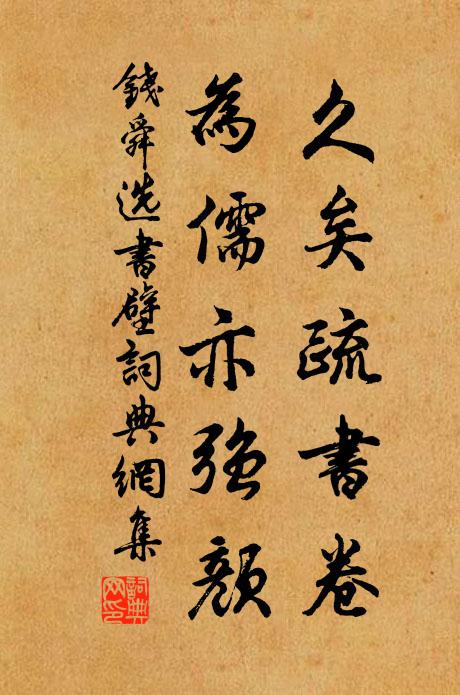 久矣疏書卷
為儒亦強顏
錢舜选書壁詞典網集
詞典网印